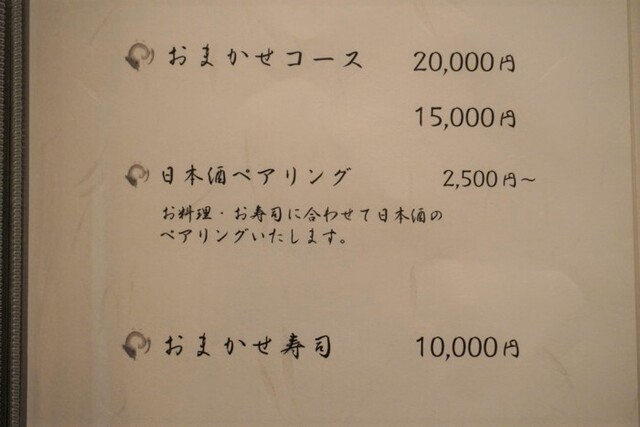 おまかせコース 20,000円
15,000円
日本酒ペアリング 2,500円～
お料理・お寿司に合わせて日本酒の
ペアリングいたします。
おまかせ寿司 10,000円